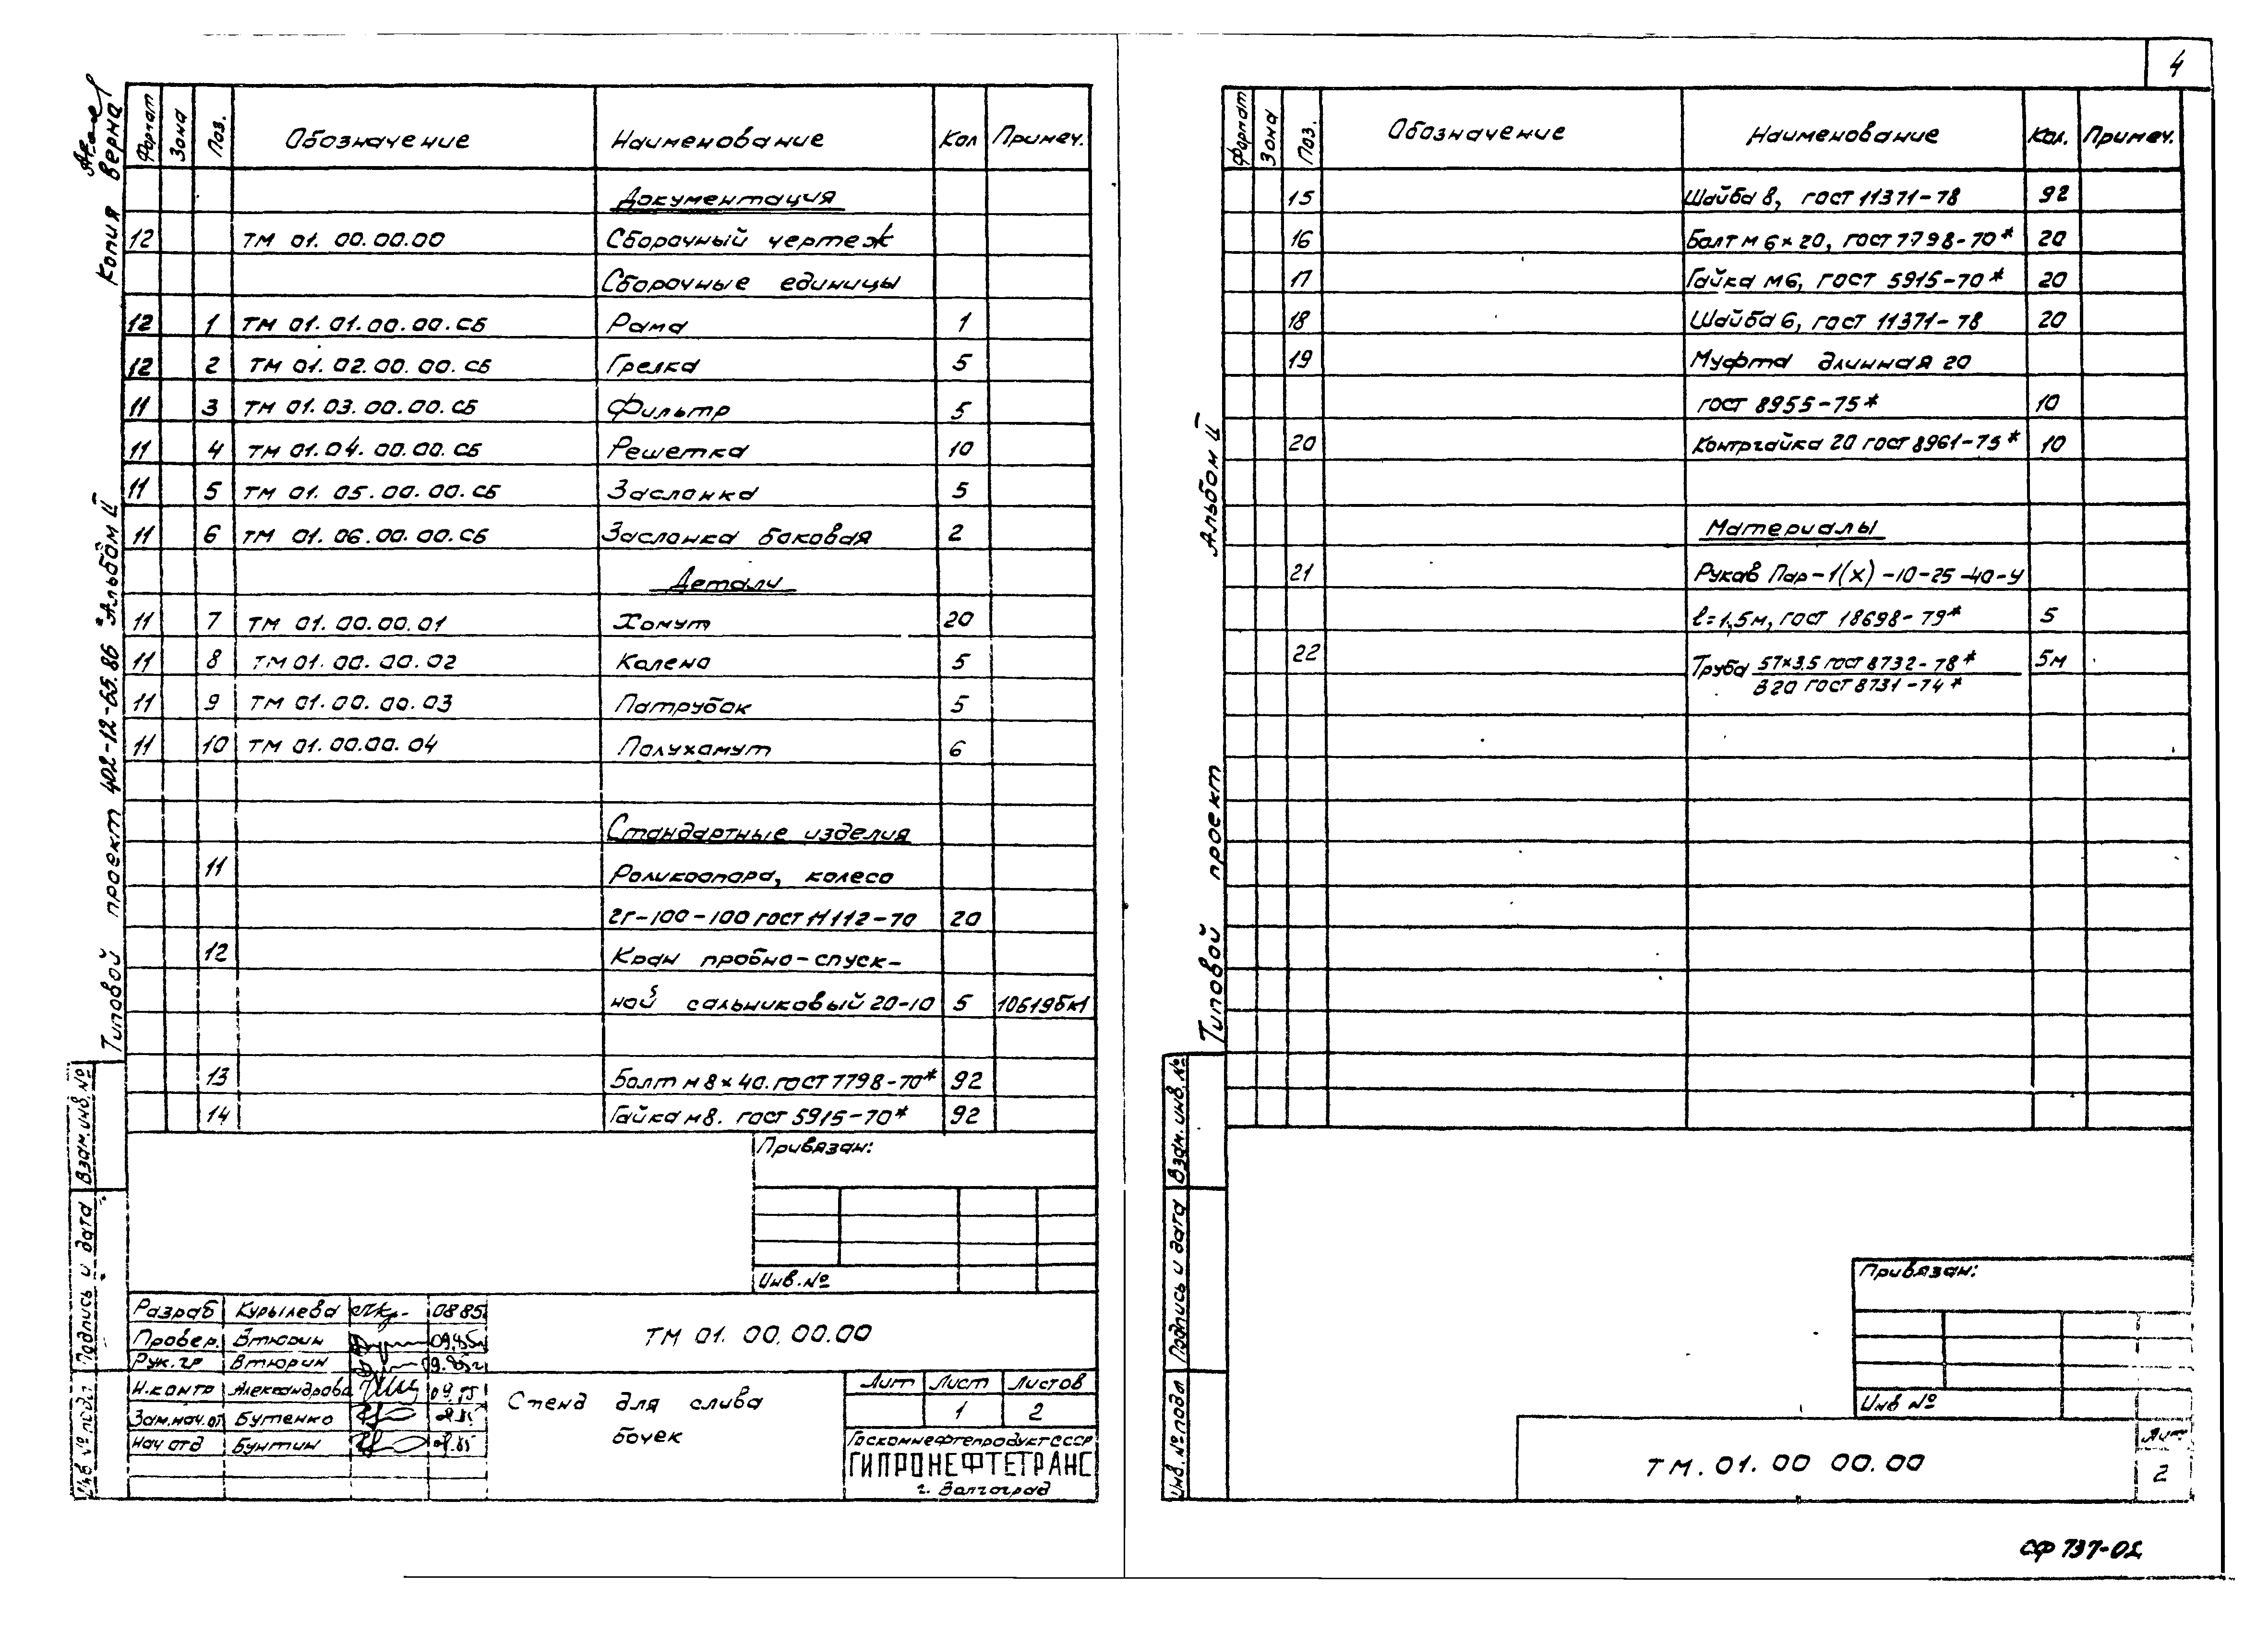 4
Копия верна
Типовой проект 402-12-65.86 Альбом II
Формат Зона Поз. Обозначение Наименование Кол Примеч.
Документация
12 ТМ 01. 00.00.00 Сборочный чертеж
Сборочные единицы
12 1 ТМ 01. 01. 00. 00. СБ Рама 1
12 2 ТМ 01. 02. 00. 00. СБ Грелка 5
11 3 ТМ 01. 03. 00. 00. СБ Фильтр 5
11 4 ТМ 01. 04. 00. 00. СБ Решетка 10
11 5 ТМ 01. 05. 00. 00. СБ Заслонка 5
11 6 ТМ 01. 06. 00. 00. СБ Заслонка боковая 2
Детали
11 7 ТМ 01. 00. 00. 01 Хомут 20
11 8 ТМ 01. 00. 00. 02 Колено 5
11 9 ТМ 01. 00. 00. 03 Патрубок 5
11 10 ТМ 01. 00.00. 04 Полухомут 6
Стандартные изделия
11 Роликоопора, колесо
2г-100-100 гост Н112-70 20
12 Кран пробно-спуск-
ной сальниковый 20-10 5 10Б19бк1
13 Болт м8×40. гост 7798-70* 92
14 Гайка м8. гост 5915-70* 92
Привязан:
Инв. №
Взам. инв. №
Подпись и дата
Инв. № подл
Разраб Курылева 08.85
Провер. Втюрин 09.85
Рук. гр Втюрин 09.85
Н.контр Александрова 09.85
Зам.нач.от Бутенко
Нач отд Бунтин
ТМ 01. 00. 00.00
Стенд для слива
бочек
Лит Лист Листов
1 2
Госкомнефтепродукт СССР
ГИПРОНЕФТЕТРАНС
г. Волгоград
Типовой проект Альбом II
Формат Зона Поз. Обозначение Наименование Кол. Примеч.
15 Шайба 8, гост 11371-78 92
16 Болт м 6×20, гост 7798-70* 20
17 Гайка м6, гост 5915-70* 20
18 Шайба 6, гост 11371-78 20
19 Муфта длинная 20
гост 8955-75* 10
20 Контргайка 20 гост 8961-75* 10
Материалы
21 Рукав Пар-1(х)-10-25-40-У
ℓ=1,5м, гост 18698-79* 5
22 Труба 57×3,5 гост 8732-78* 5м
В20 гост 8731-74*
Взам. инв. №
Подпись и дата
Инв. № подл
Привязан:
Инв №
ТМ. 01. 00 00.00
Лит
2
СФ 737-02